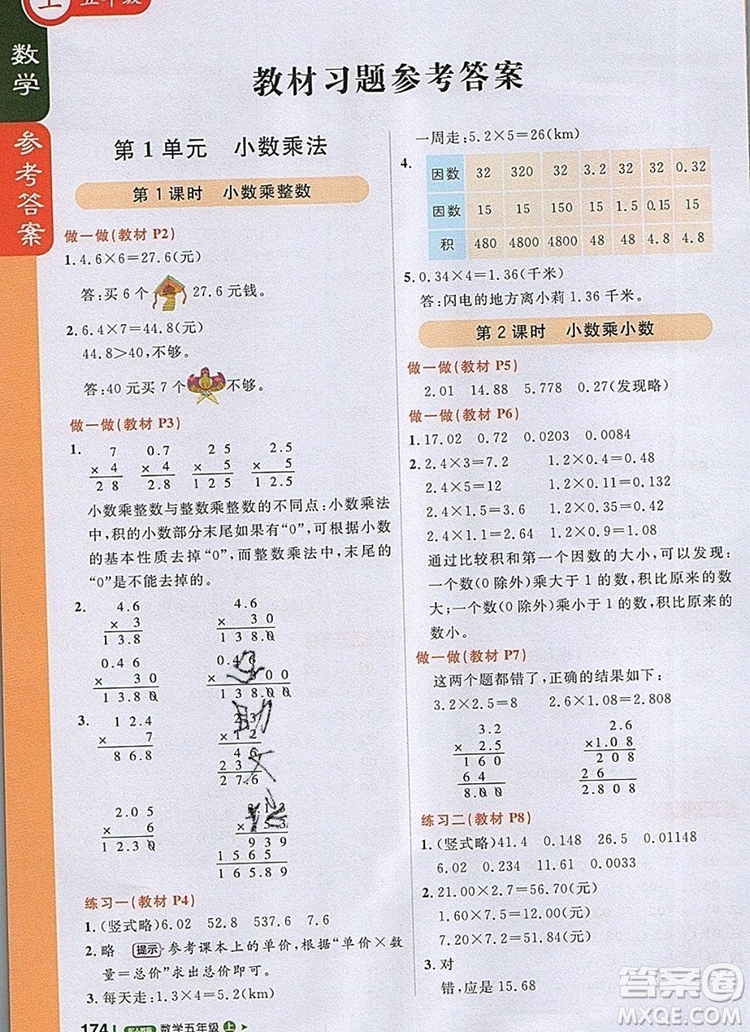 上 五年级
数学
参考答案
教材习题参考答案
第1单元 小数乘法
第1课时 小数乘整数
做一做(教材 P2)
1.4.6×6=27.6(元)
答:买6个 27.6元钱。
2.6.4×7=44.8(元)
44.8>40,不够。
答:40元买7个 不够。
做一做(教材 P3)
1. 7 0.7 25 2.5
×4 ×4 ×8 ×8
28 2.8 200 20.0
小数乘整数与整数乘整数的不同点:小数乘法
中,积的小数部分末尾如果有“0”,可根据小数
的基本性质去掉“0”,而整数乘法中,末尾的
“0”是不能去掉的。
2. 4.6 4.6
×3 ×30
13.8 138.0
0.46
×30 ×30
13.80 13.800
3. 12.4
×7 ×12
86.8
23
27.6
2.05
×6
12.30
939
1565
练习一(教材 P4)
1.(竖式略)6.02 52.8 537.6 7.6
2.略 提示 参考课本上的单价,根据“单价×数
量=总价”求出总价即可。
3.每天走:1.3×4=5.2(km)
一周走:5.2×5=26(km)
4.
因数 32 320 32 3.2 32 0.32
因数 15 15 150 1.5 0.15 15
积 480 4800 4800 4.8 4.8 4.8
5.0.34×4=1.36(千米)
答:闪电的地方离小莉1.36千米。
第2课时 小数乘小数
做一做(教材 P5)
2.01 14.88 5.778 0.27(发现略)
做一做(教材 P6)
1.17.02 0.72 0.0203 0.0084
2.2.4×3=7.2 1.2×0.4=0.48
2.4×5=12 1.2×0.5=0.6
2.4×1.5=3.6 1.2×1.4=1.68
2.4×1.1=2.64 1.2×1.3=1.56
通过比较积和第一个因数的大小,可以发现:
一个数(0除外)乘大于1的数,积比原来的数
大;一个数(0除外)乘小于1的数,积比原来的
数小。
做一做(教材 P7)
这两个题都错了,正确的结果如下:
3.2×2.5=8 2.6×1.08=2.808
3.2 2.6
×2.5 ×1.08
160 208
64 26
8.00 2.808
练习二(教材 P8)
1.(竖式略)41.4 0.148 26.5 0.01148
6.02 0.096 0.11 0.0033
2.21.00×2.7=56.70(元)
1.60×7.5=12.00(元)
7.20×7.2=51.84(元)
3.对
错,应是15.68
174 数学五年级 上
答案圈
MXQE.COM